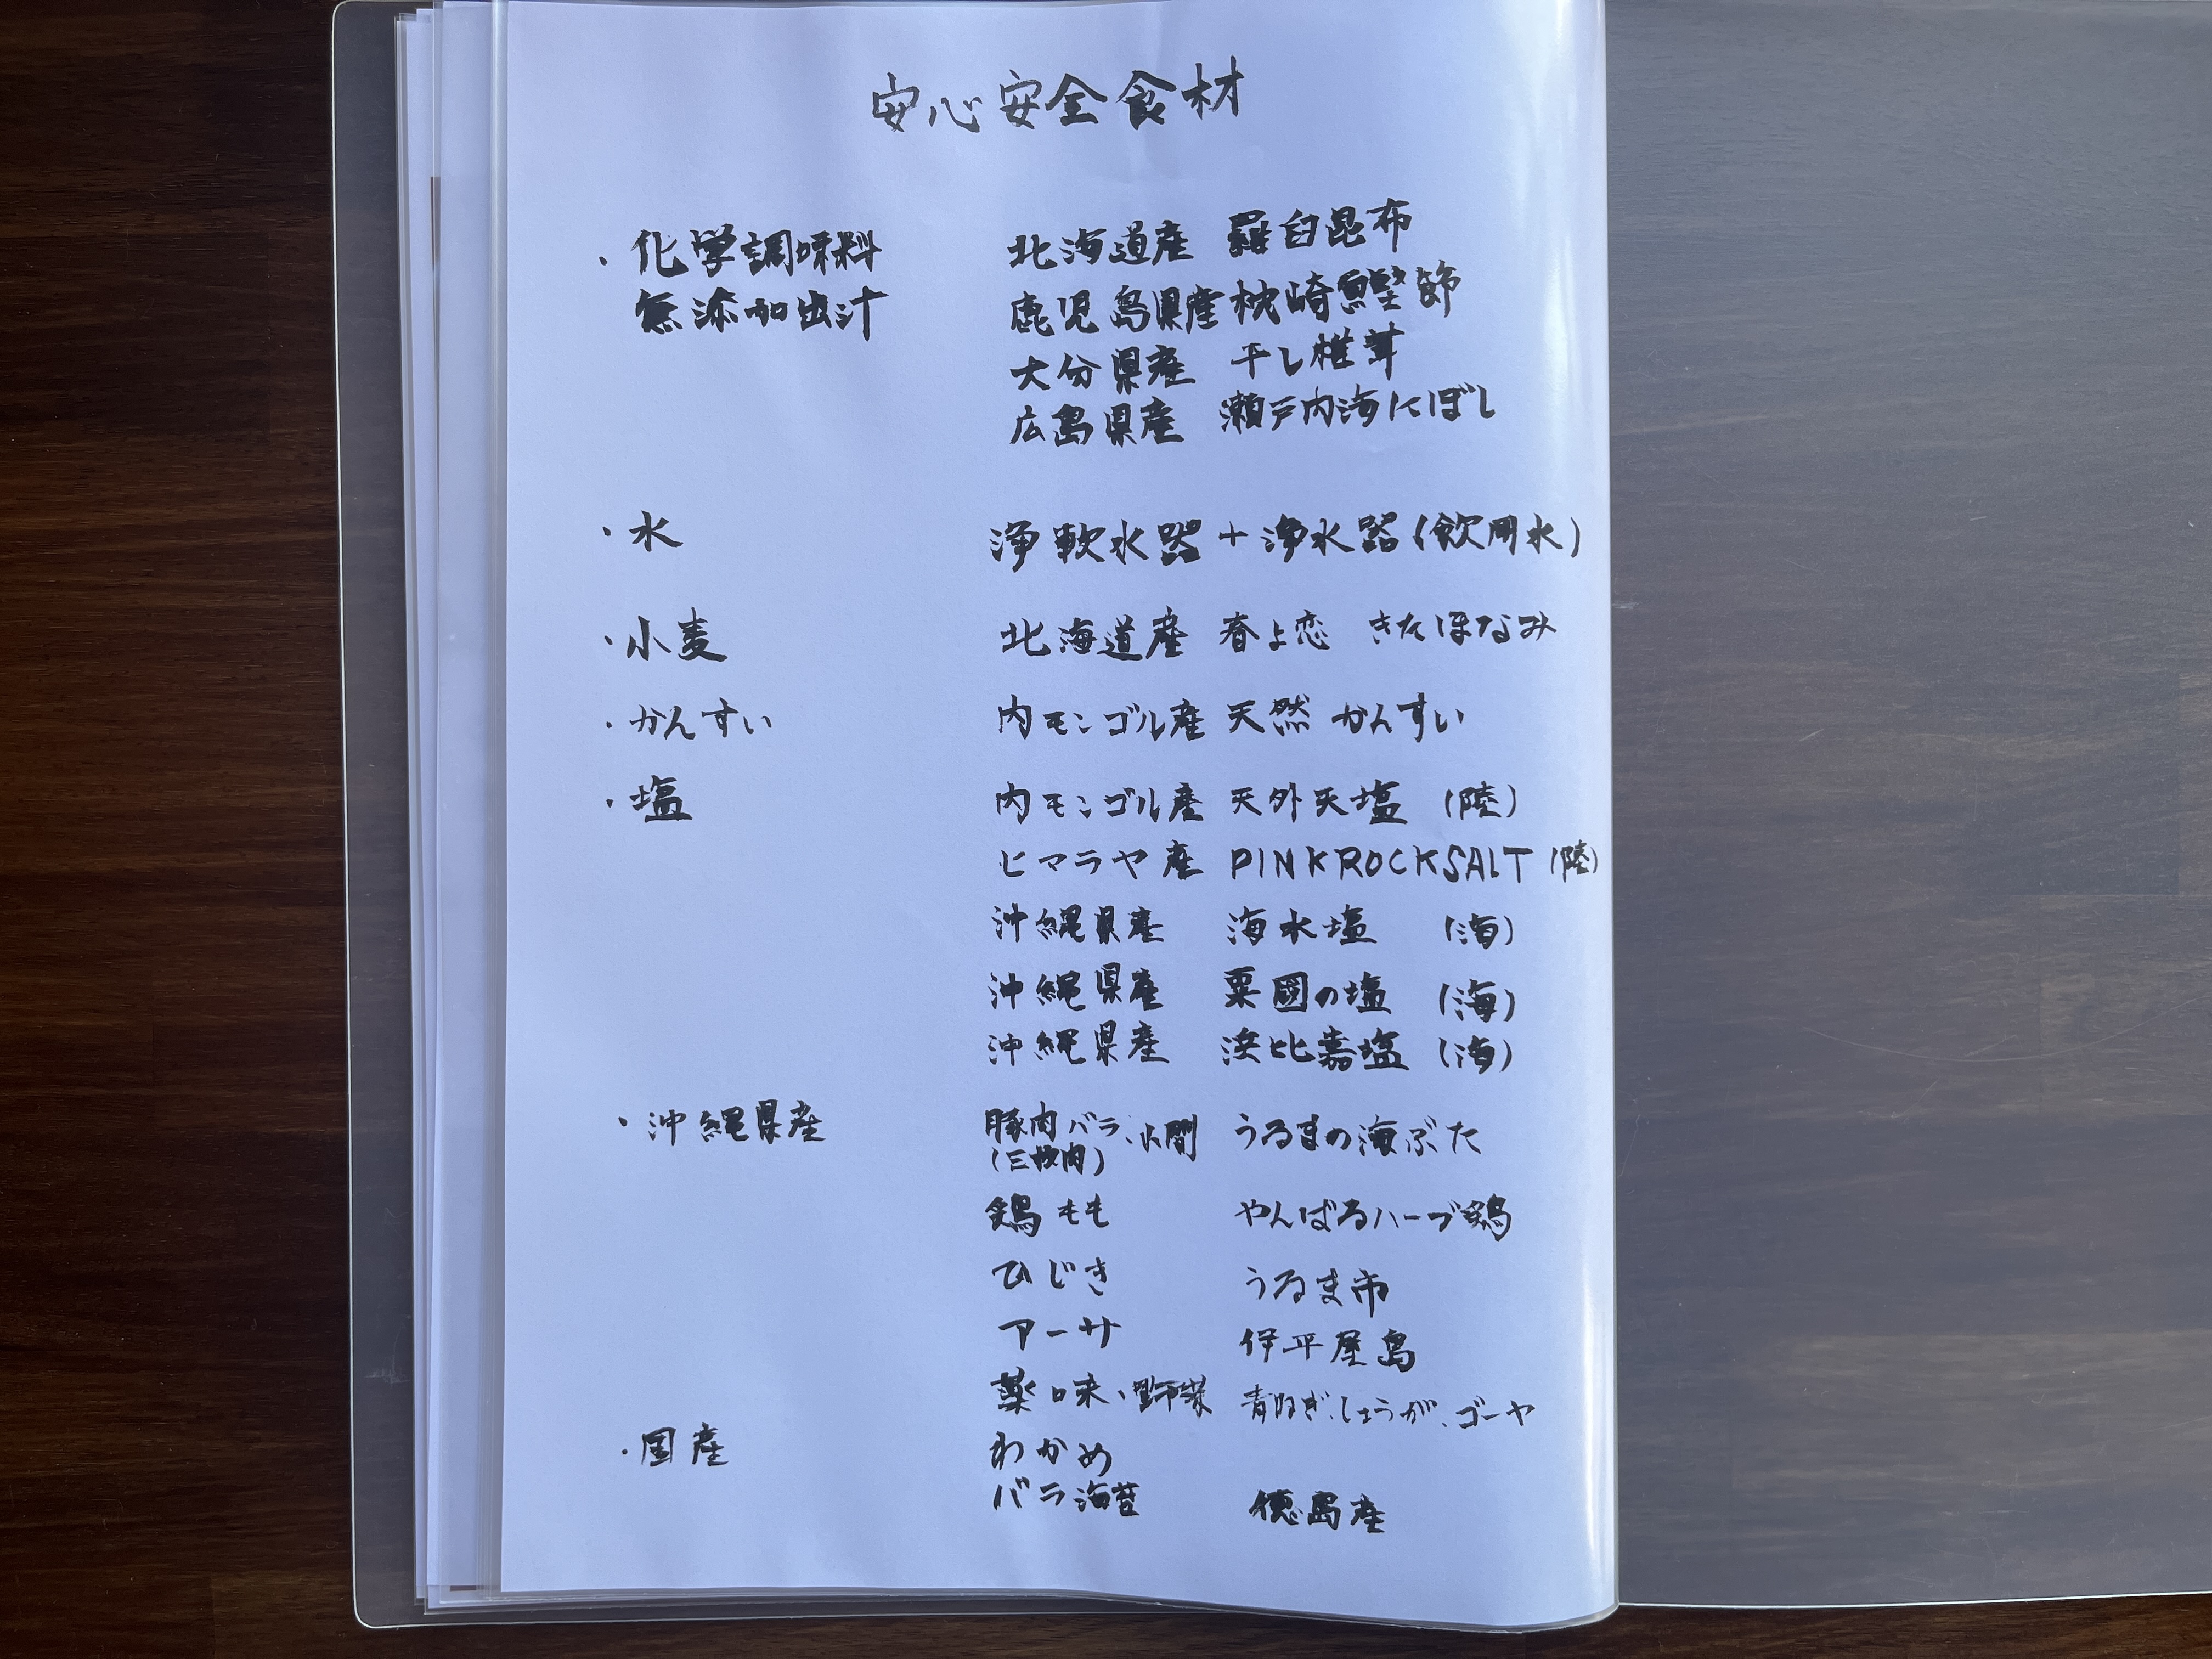 安心安全食材
・化学調味料 北海道産 羅臼昆布
無添加出汁 鹿児島県産 枕崎鰹節
大分県産 干し椎茸
広島県産 瀬戸内海にぼし
・水 浄軟水器+浄水器(飲用水)
・小麦 北海道産 春よ恋 きたほなみ
・かんすい 内モンゴル産 天然かんすい
・塩 内モンゴル産 天外天塩 (陸)
ヒマラヤ産 PINKROCKSALT (陸)
沖縄県産 海水塩 (海)
沖縄県産 粟國の塩 (海)
沖縄県産 浜比嘉塩 (海)
・沖縄県産 豚肉バラ、小間 うるまの海ぶた
(三枚肉)
鶏もも やんばるハーブ鶏
ひじき うるま市
アーサ 伊平屋島
薬味、野菜 青ねぎ、しょうが、ゴーヤ
・国産 わかめ
バラ海苔 徳島産